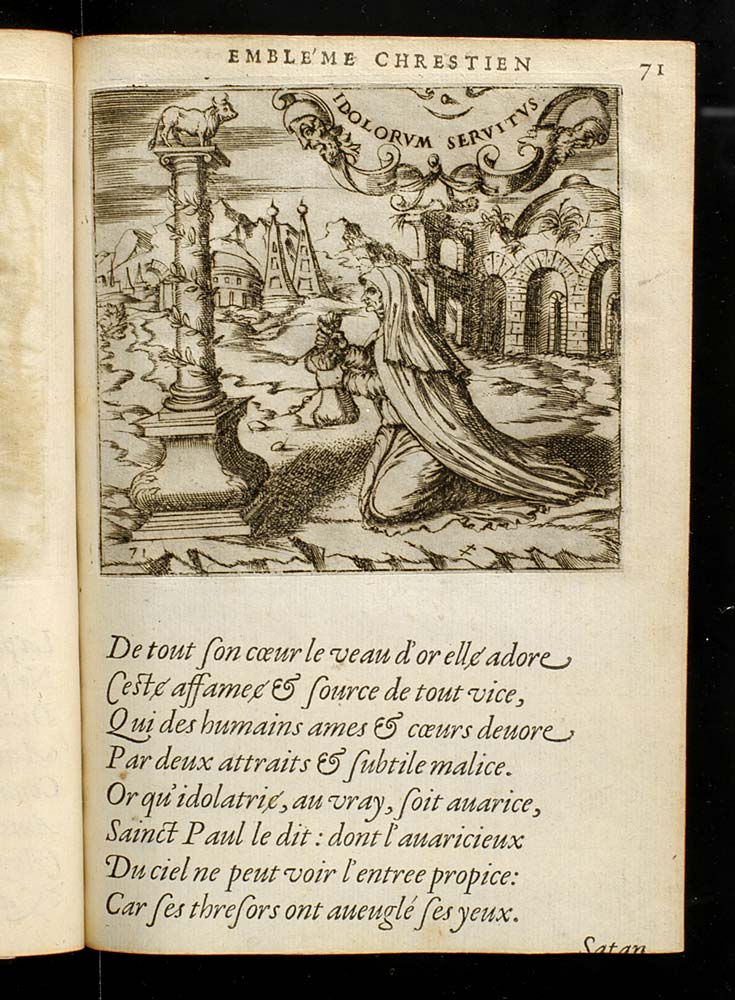 EMBLE'ME CHRESTIEN
71
IDOLORVM SERVITVS
71
De tout ſon cœur le veau d'or ellɇ adore
Ceſtɇ affameɇ & ſource de tout vice,
Qui des humains ames & cœurs deuore
Par deux attraits & ſubtile malice.
Or qu'idolatriɇ, au vray, ſoit auarice,
Sainct Paul le dit : dont l'auaricieux
Du ciel ne peut voir l'entree propice:
Car ſes threſors ont aueuglé ſes yeux.
Satan